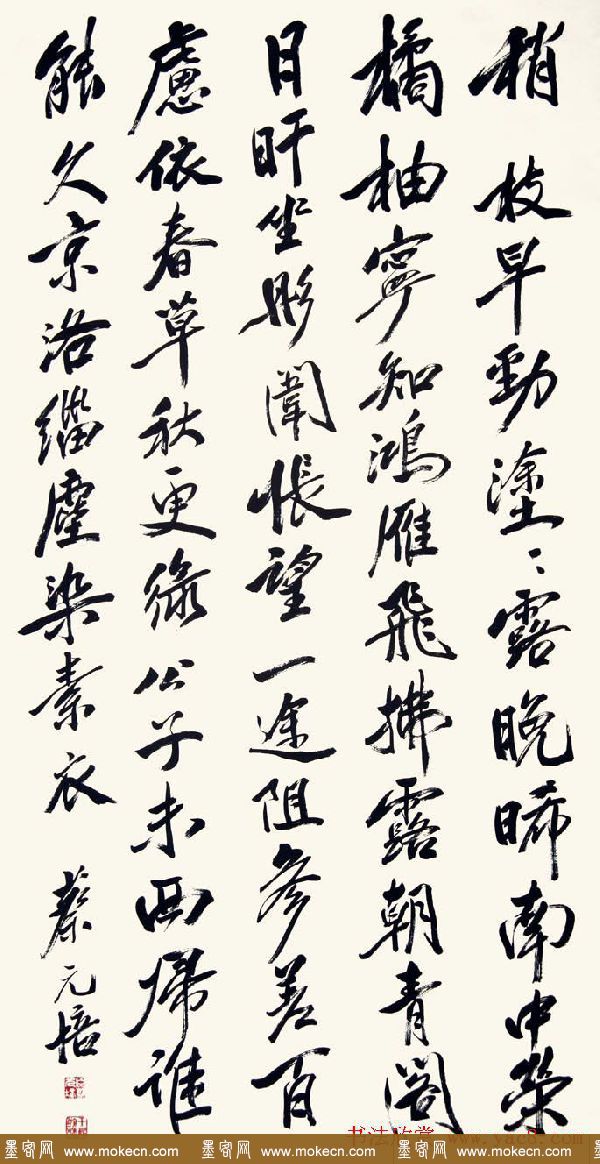 稍枝早勁塗〻露晚晞南中榮
橘柚寧知鴻雁飛拂露朝青閣
日旰坐彤闈悵望一途阻參差百
慮依春草秋更綠公子未西歸誰
能久京洛緇塵染素衣
蔡元培
书法欣赏 www.yac8.com
墨客网 www.mokecn.com 墨客网 www.mokecn.com 墨客网 www.mokecn.com